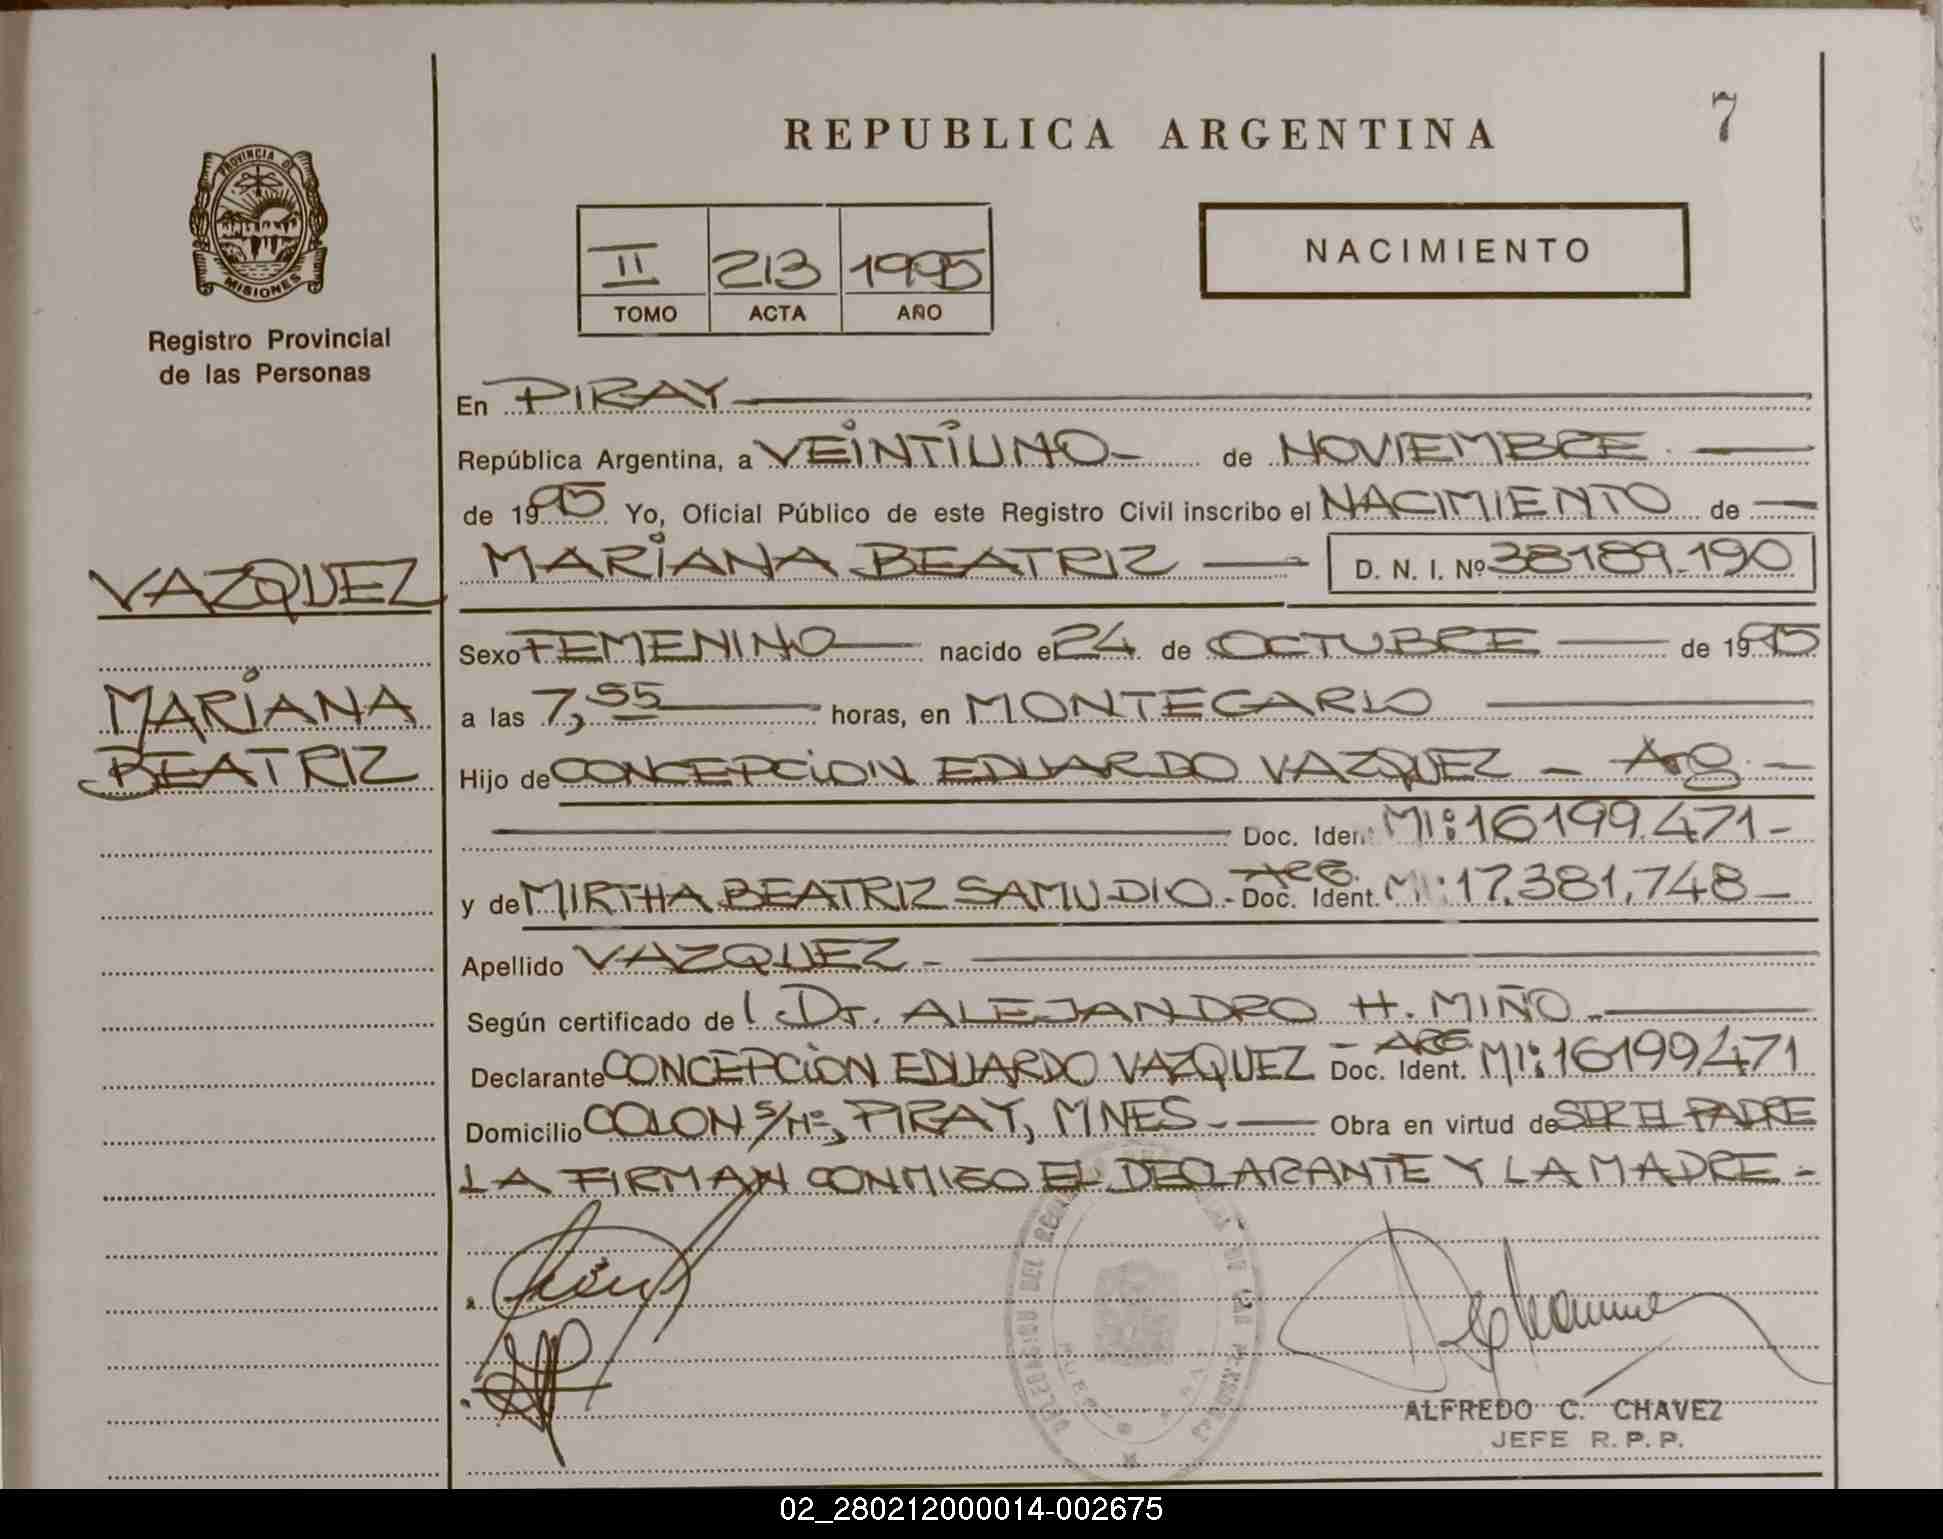 7
REPUBLICA ARGENTINA
PROVINCIA DE
MISIONES
Registro Provincial
de las Personas
II 213 1995
TOMO ACTA AÑO
NACIMIENTO
En PIRAY
República Argentina, a VEINTIUNO- de NOVIEMBRE
de 1995 Yo, Oficial Público de este Registro Civil inscribo el NACIMIENTO de
VAZQUEZ
MARIANA BEATRIZ D. N. I. Nº 38189.190
Sexo FEMENINO nacido el 24 de OCTUBRE de 1995
MARIANA
a las 7,55 horas, en MONTECARLO
BEATRIZ
Hijo de CONCEPCION EDUARDO VAZQUEZ - Arg. -
Doc. Ident. MI: 16199.471-
y de MIRTHA BEATRIZ SAMUDIO.- ARG. Doc. Ident. MI: 17.381.748-
Apellido VAZQUEZ -
Según certificado del Dr. ALEJANDRO H. MIÑO.-
Declarante CONCEPCION EDUARDO VAZQUEZ - ARG. Doc. Ident. MI: 16199.471
Domicilio COLON S/Nº, PIRAY, MNES.- Obra en virtud de SER EL PADRE
LA FIRMAN CONMIGO EL DECLARANTE Y LA MADRE.-
DELEGACION DEL REGISTRO DE LAS PERSONAS
ALFREDO C. CHAVEZ
JEFE R. P. P.
02_280212000014-002675